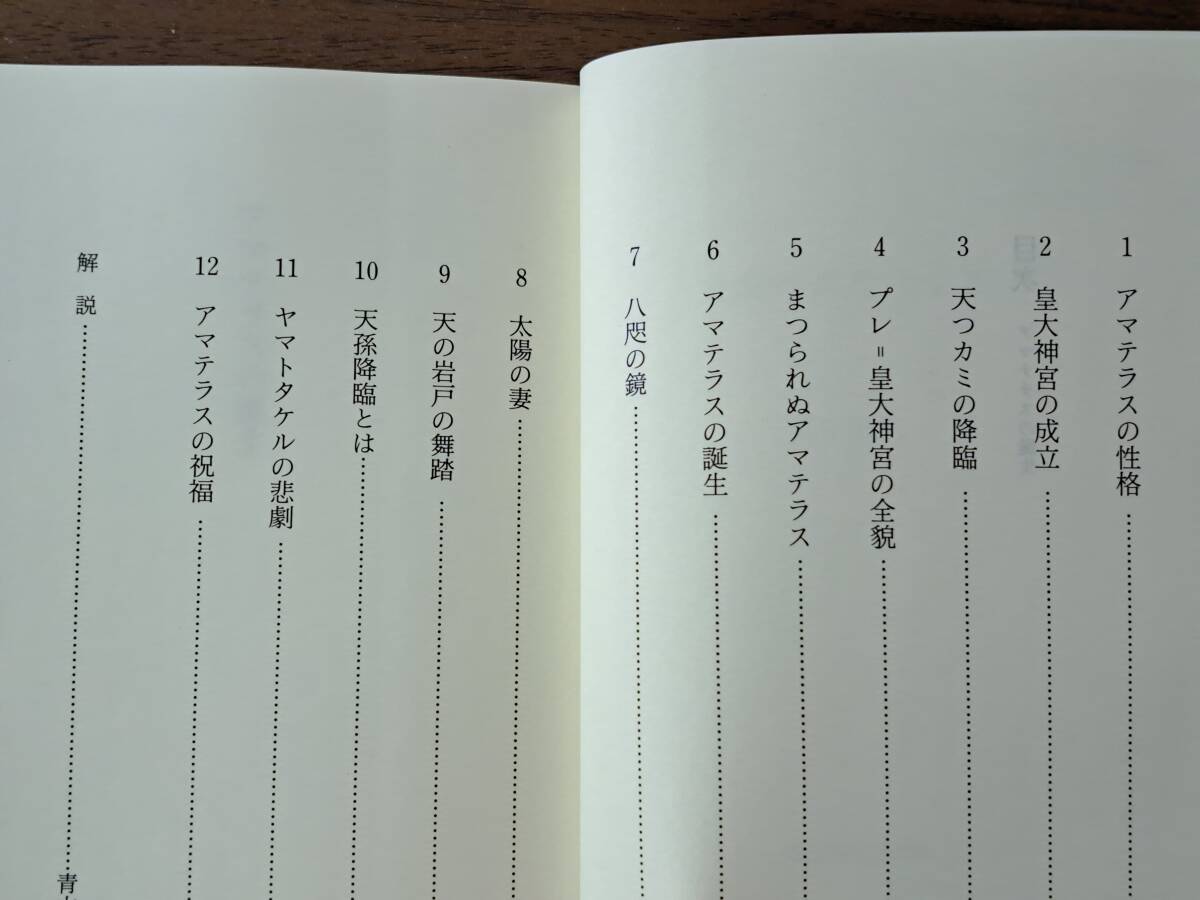 1 アマテラスの性格
2 皇大神宮の成立
3 天つカミの降臨
4 プレ=皇大神宮の全貌
5 まつられぬアマテラス
6 アマテラスの誕生
7 八咫の鏡
8 太陽の妻
9 天の岩戸の舞踏
10 天孫降臨とは
11 ヤマトタケルの悲劇
12 アマテラスの祝福
解説 青